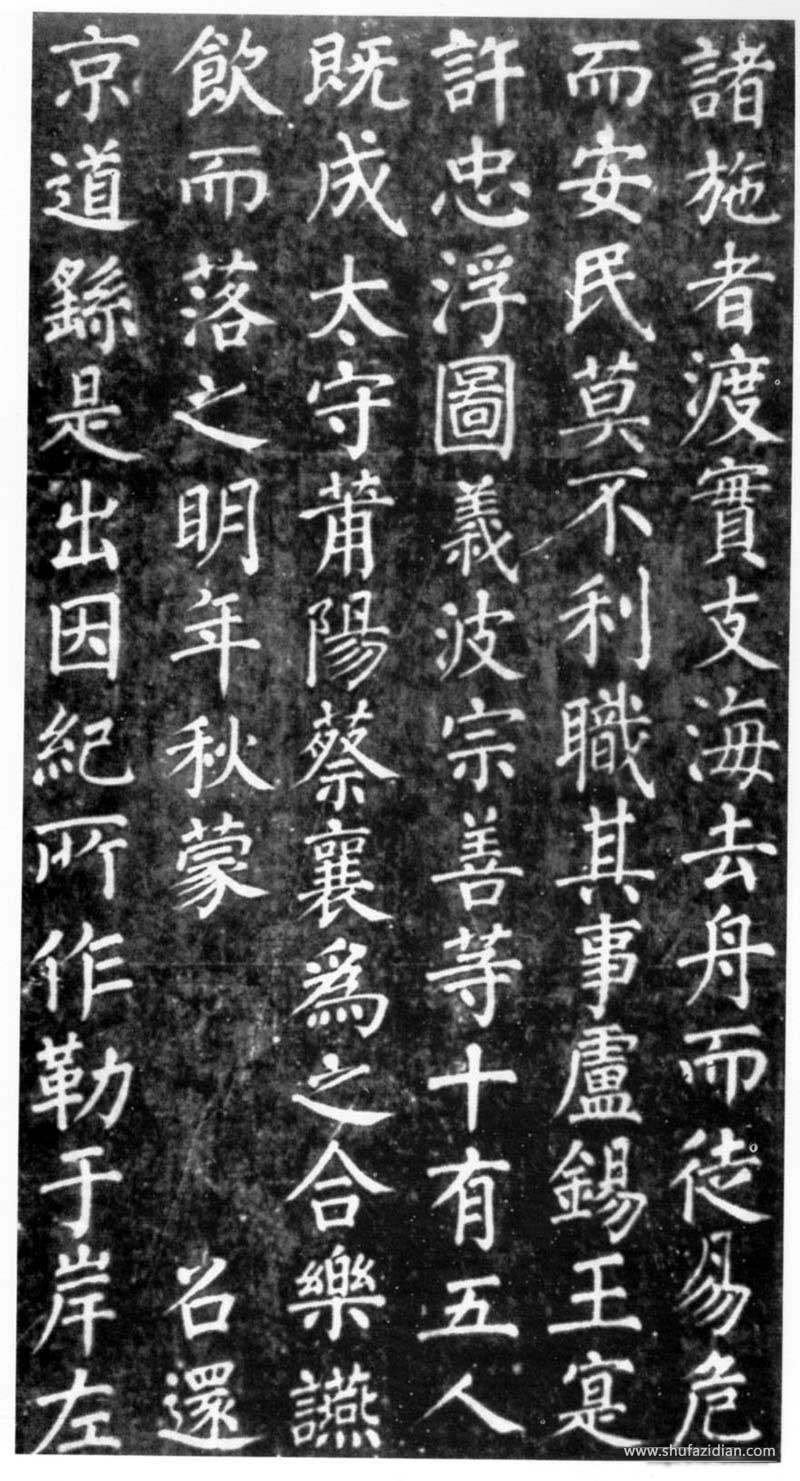 諸施者渡實支海去舟而徒易危
而安民莫不利職其事盧錫王寔
許忠浮圖義波宗善等十有五人
既成太守莆陽蔡襄爲之合樂讌
飲而落之明年秋蒙 召還
京道繇是出因紀所作勒于岸左
www.shufazidian.com